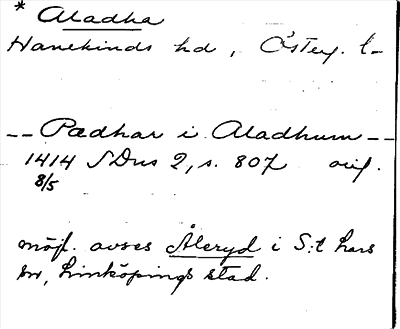 * Aladha
Hanekinds hd, Österg. l–
-- Pædhar i Aladhum --
1414 SDns 2, s. 807 avs.
8/5
möjl. avses Åleryd i S:t Lars
sn, Linköpings stad.